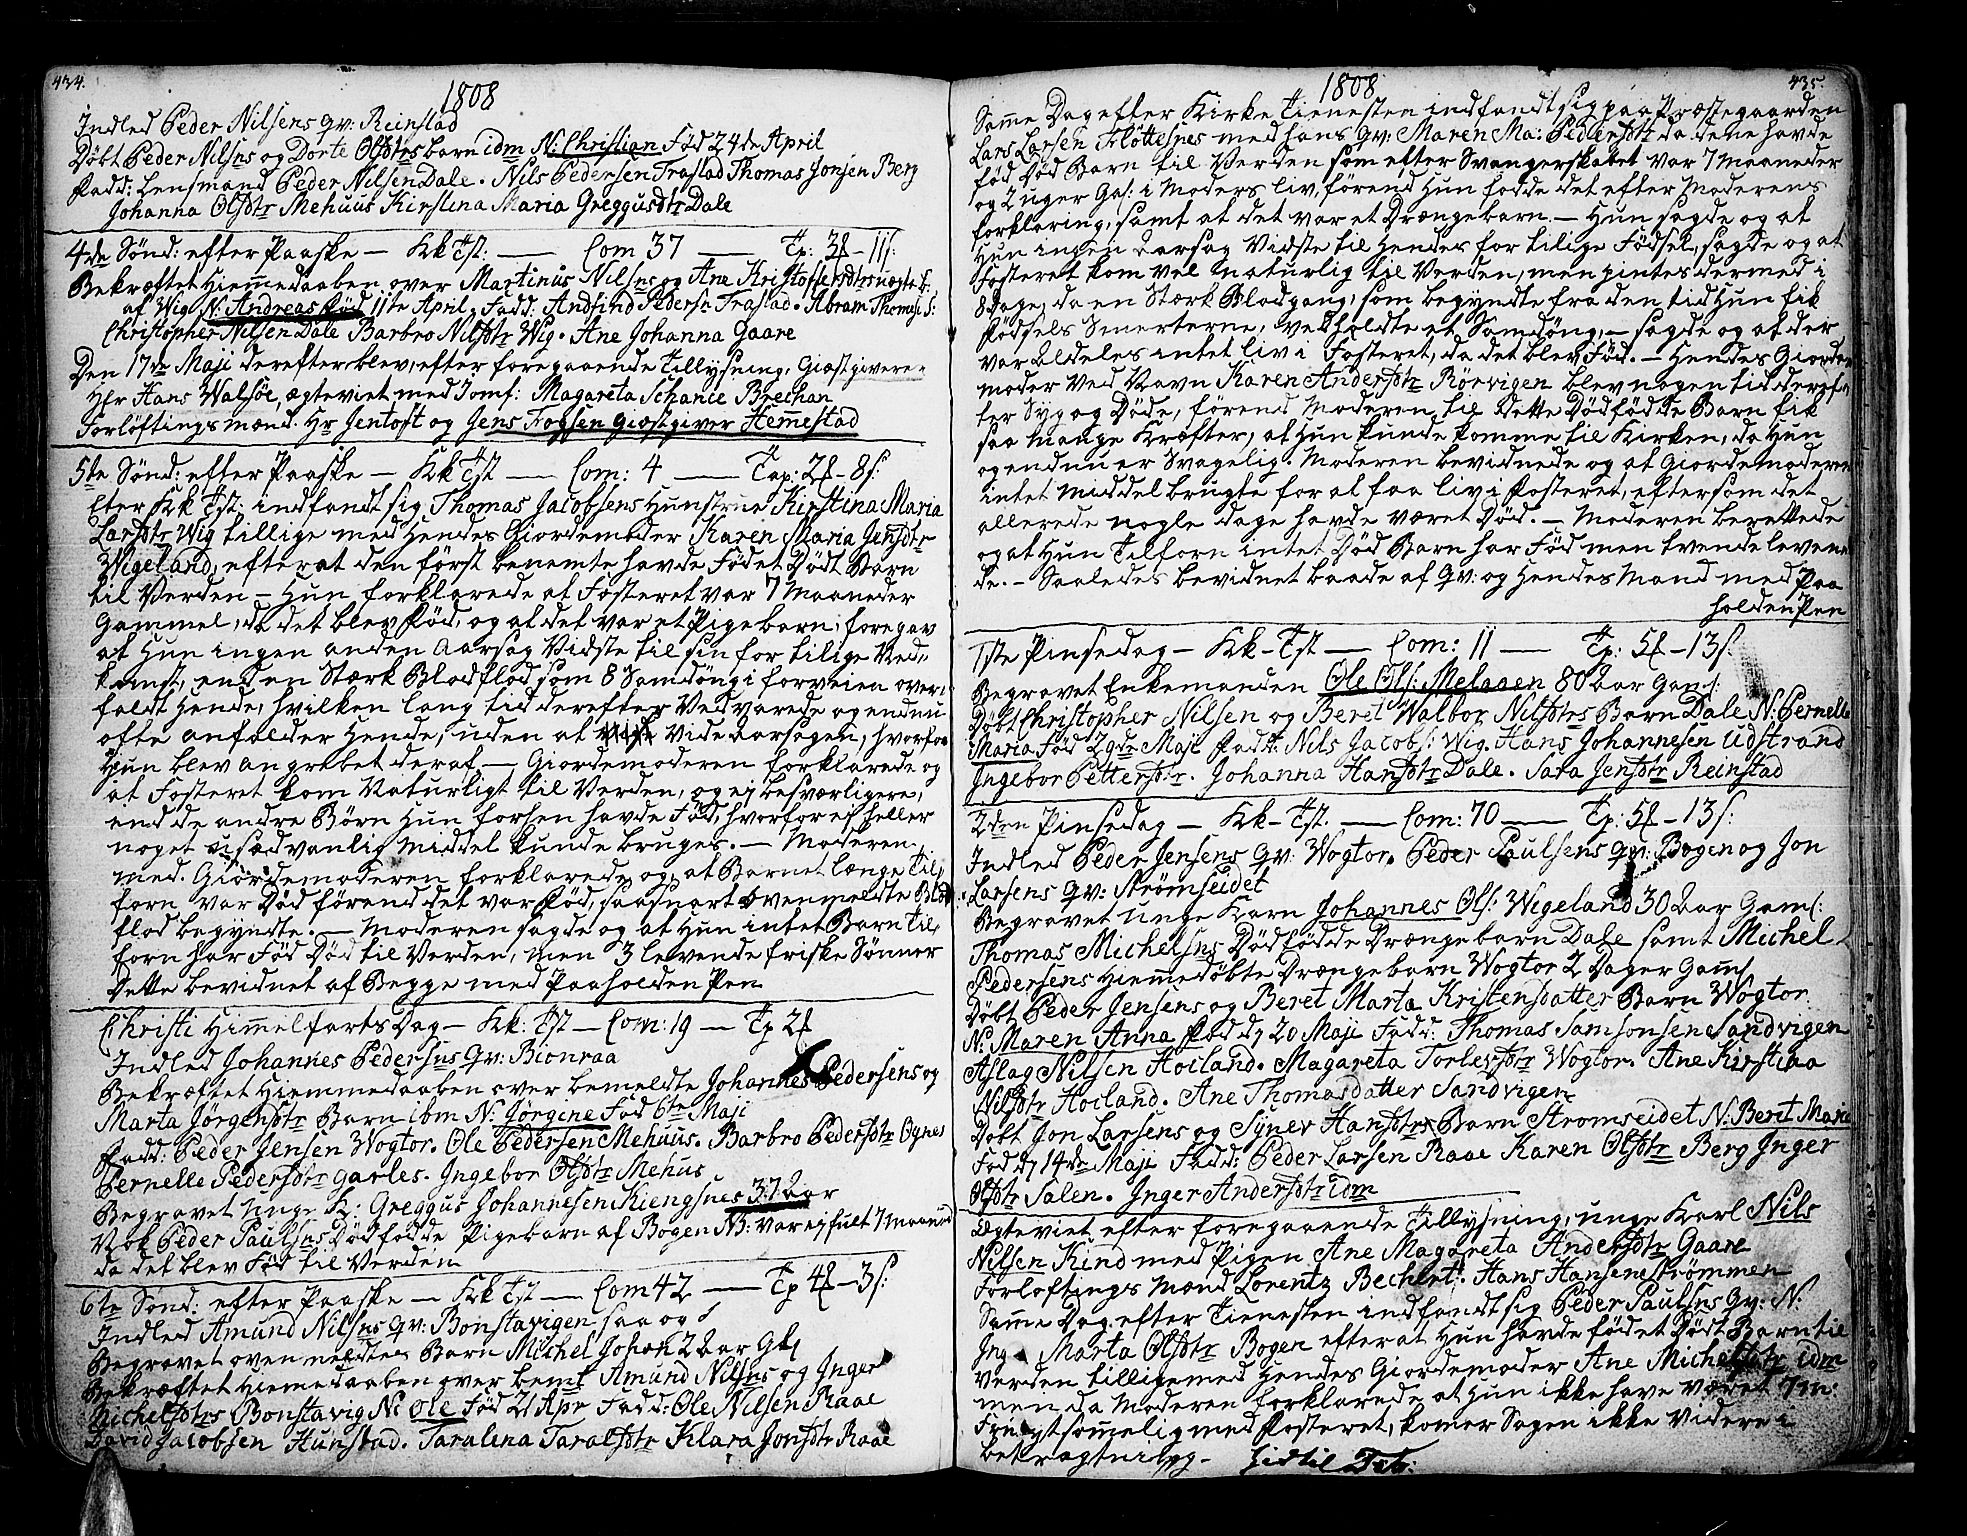 434.
1808
Indled Peder Nilsens qv: Reinstad
Døbt Peder Nilsns og Dorte Olsdtrs barn idm N: Christian Fød 24de April
Fadd: Lensmand Peder Nilsen Dale. Nils Pedersen Frastad Thomas Jonsen Berg
Johanna Olsdtr Mehuus Kirstina Maria Greggusdtr Dale
4de Sønd: efter Paaske — Kk Tst: — Com 37 — Tp: 3f-11s:
Bekræftet Hiem̄edaaben over Martinus Nilsns og Ane Kristofersdtrs uægte b:
af Wig N: Andreas Fød 11te April. Fadd: Andfind Pedersn Frastad. Abram Thomes: S:
Christopher Nilsen Dale Barbro Nilsdtr Wig. Ane Johanna Gaare
Den 17de Maji derefter blev, efter foregaaende Tillysning, Giæstgivere
Hr Hans Walsøe, ægteviet med Jomf: Magareta Schance Brechan
Forløftingsmænd. Hr Jentoft og Jens Fogsen giæstgiver Hem̄estad
5te Sønd: efter Paaske — Kk Tst — Com: 4 — Tap: 2f-8s:
Efter Kk Tst: indfandt sig Thomas Jacobsens Hunstrue Kirstina Maria
Larsdtr Wig tillige med Hendes Giordemoder Karen Maria Jensdtr
Wigeland, efterat den først benemte havde Født Dødt Barn
til Verden — Hun forklarede at Fosteret var 7 Maaneder
Gammel, da det blev Fød, og at det var et Pigebarn, foregav
at Hun ingen anden Aarsag Vidste til sin for tilige Ned-
komst, end en Stærk Blodflod som 8 Samdøng i forveien over-
faldt Hende, hvilken lang tid derefter Vedvarede og endnu
ofte anfalder Hende, uden at vide Aarsagen, hvorfor
Hun blev angrebet deraf. — Giordemoderen forklarede og
at Fosteret kom Naturligt til Verden, og ej besværligere,
end de andre Børn Hun forhen havde Fød, hvorfor ej heller
noget usædvanlig Middel kunde bruges. — Moderen
med Giordemoderen forklarede og, at Barnet længe til,
forn var Død førend det var Fød, saasnart ovenmeldte Blod
flod begyndte. — Moderen sagde og at Hun intet Barn til,
forn har Fød Død til Verden, men 3 levende friske Sønner
Dette bevidnet af Begge med Paaholden Pen
Christi Him̄elfarts Dag — Kk: Tst — Com: 19 — Tp 2f
Indled Johannes Pedersns qv: Bionraa
Bekræftet Hiemmedaaben over bemeldte Johannes Pedersens og
Marta Jørgensdtr Barn ibm N: Jørgine Fød 6te Maji
Fadd: Peder Jensen Wogtor. Ole Pedersen Mehuus. Barbro Pedersdtr Ognes
Pernelle Pedersdtr Garles. Ingebor Olsdtr Mehus
Begravet Unge K: Greggus Johannesen Kiengsnes 37 2 aar
Nok Peder Paulsns Dødfødde Pigebarn af Bogen NB: var ej fult 7 maaned
da det blev Fød til Verden
6te Sønd: efter Paaske — Kk Tst — Com 42 — Tp 4f-3s:
Indled Amund Nilsns qv: Bonstavigen saa og
Begravet ovenmeldtes Barn Michel Johan 2 Aar Gl
Bekræftet Hiemedaaben over bemt Amund Nilsns og Inger
Michelsdtrs Bonstavig N: Ole Fød 21 Apr Fadd: Ole Nilsen Raae
David Jacobsen Hunstad. Taralina Taralsdtr Klara Jonsdtr Raae
435.
1808
Sam̄e Dag efter Kirke Tienesten indfandt sig paa Præstegaarden
Lars Larsen Fløttesnes med hans qv: Maren Ma: Pedersdtr da dene havde
fød Død Barn til Verden som efter Svangerskabet var 7 Maaneder
og 2 uger Ga: i Moders liv, førend Hun fødde det efter Moderens
forklaring, samt at det var et Drængebarn. — Hun sagde og at
Hun ingen Aarsag Vidste til Hendes for tilige Fødsel, sagde og at
Fosteret kom vel Naturlig til Verden, men pintes dermed i
8 dage, da en Stærk Blodgang, som begyndte fra den tid Hun fik
Fødsels Smerterne, vedholdte et Samdøng, — sagde og at der
var aldeles intet liv i Fosteret, da det blev Fød. — Hendes Giorde
moder ved Navn Karen Andersdtr Rørvigen blev nogen tid deref
ter Syg og Døde, førend Moderen til dette Dødfødde Barn fik
saa mange Kræfter, at Hun kunde komme til Kirken, da Hun
og endnu er Svagelig. Moderen bevidnede og at Giordemoderen
intet Middel brugte for at faa liv i Fosteret, eftersom det
allerede nogle dage havde været Død. — Moderen berettede
og at Hun Tilforn intet Død Barn har Fød men tvende leven
de. — Saaledes bevidnet baade af qv: og Hendes Mand med Paa
holden Pen
1ste Pinsedag — Kk-Tst — Com: 11 — Tp: 5f-13s:
Begravet Enkemanden Ole Ols: Melaaen 80 Aar Gaml:
Døbt Christopher Nilsen og Beret Walbor Nilsdtrs Barn Dale N: Pernelle
Maria Fød 29de Maji Fadd: Nils Jacobs: Wig. Hans Johannesen Udstrand
Ingebor Pettersdtr. Johanna Hansdtr Dale. Sara Jensdtr Reinstad
2den Pinsedag — Kk-Tst. — Com: 70 — Tp: 5f-13s:
Indled Peder Jensens qv: Wogtor. Peder Paulsens qv: Bogen og Jon
Larsens qv: Strømseidet
Begravet unge Karn Johannes Ols: Wigeland 30 Aar Gaml:
Thomas Michelsns Dødfødde Drænge barn Dale samt Michel
Pedersens Hiem̄edøbte Drængebarn Wogtor 2 Dager Gam̄l
Døbt Peder Jensens og Beret Marta Kristensdatter Barn Wogtor
N: Maren Anna Fød dn 20 Maji Fadd: Thomas Samsonsen Sandvigen
Aslag Nilsen Hoiland. Magareta Torlevsdtr Wogtor. Ane Kirstina
Nilsdtr Hoiland. Ane Thomasdatter Sandvigen
Døbt Jon Larsens og Synev Hansdtrs Barn Strømseidet N: Berit Maria
Fød dn 14de Maji Fadd: Peder Larsen Raae Karen Olsdtr Berg Inger
Olsdtr Salen. Inger Andersdtr idm
Ægteviet efter foregaaende Tillysning, unge Karl Nils
Nilsen Kind med Pigen Ane Magareta Andersdtr Gaare
Forløftings Mænd Lorentz Bechert. Hans Hansen Strømmen
Sam̄e Dag efter Tienesten indfandt sig Peder Paulsns qv: N:
Ing Marta Olsdtr Bogen efterat Hun havde fødet Dødt Barn til
Verden tillige med Hendes Giordemoder Ane Michelsdtr idm
men da Moderen forklarede at Hun ikke have været 7 m:
Frugtsom̄elig med Fosteret, komer Sagen ikke Videre i
bekragtning. — Hidtil Tab: